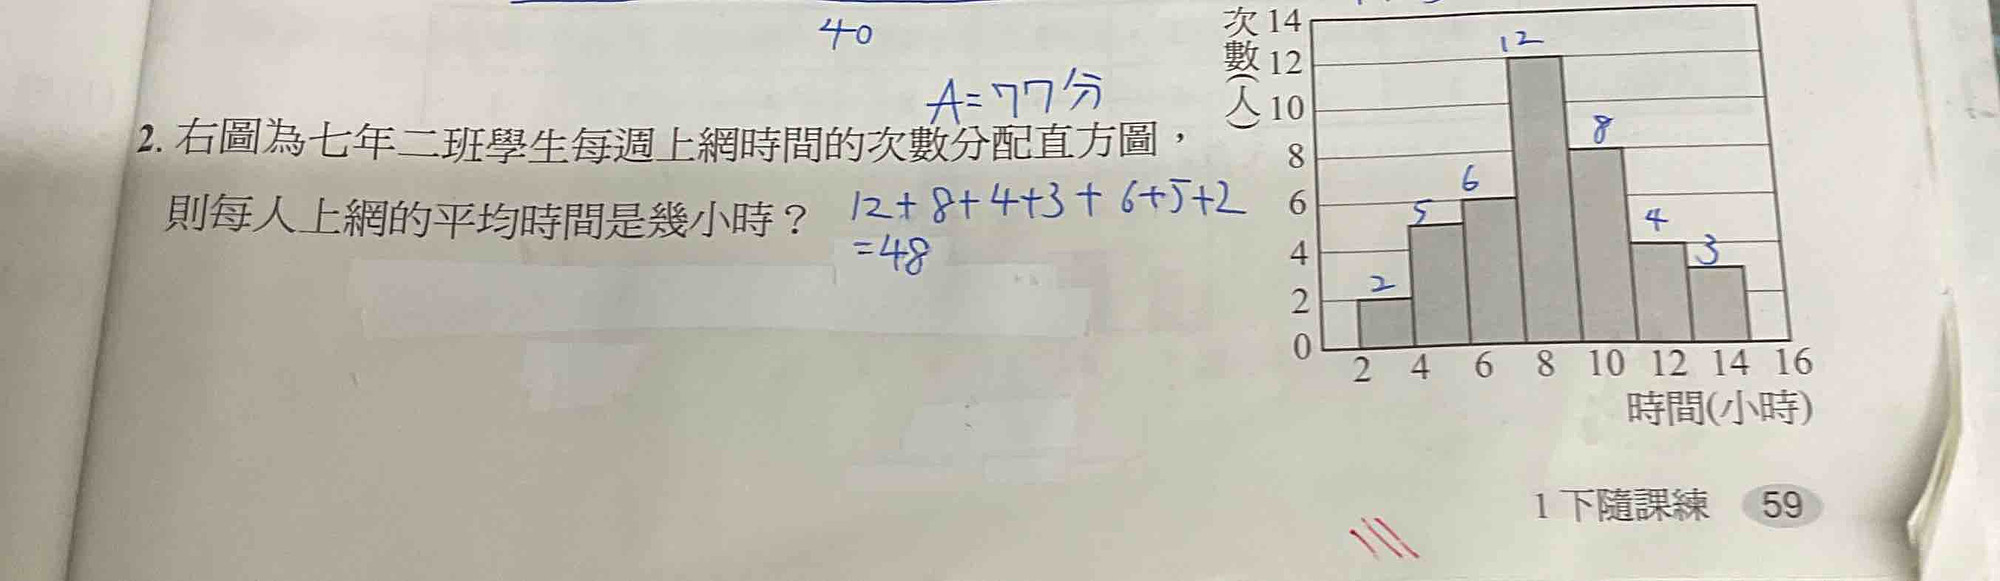 40
A=77分
2. 右圖為七年二班學生每週上網時間的次數分配直方圖，
則每人上網的平均時間是幾小時？
12+8+4+3+6+5+2
=48
次數(人)
14
12
10
8
6
4
2
0
2
5
6
12
8
4
3
2 4 6 8 10 12 14 16
時間(小時)
1下隨課練 59